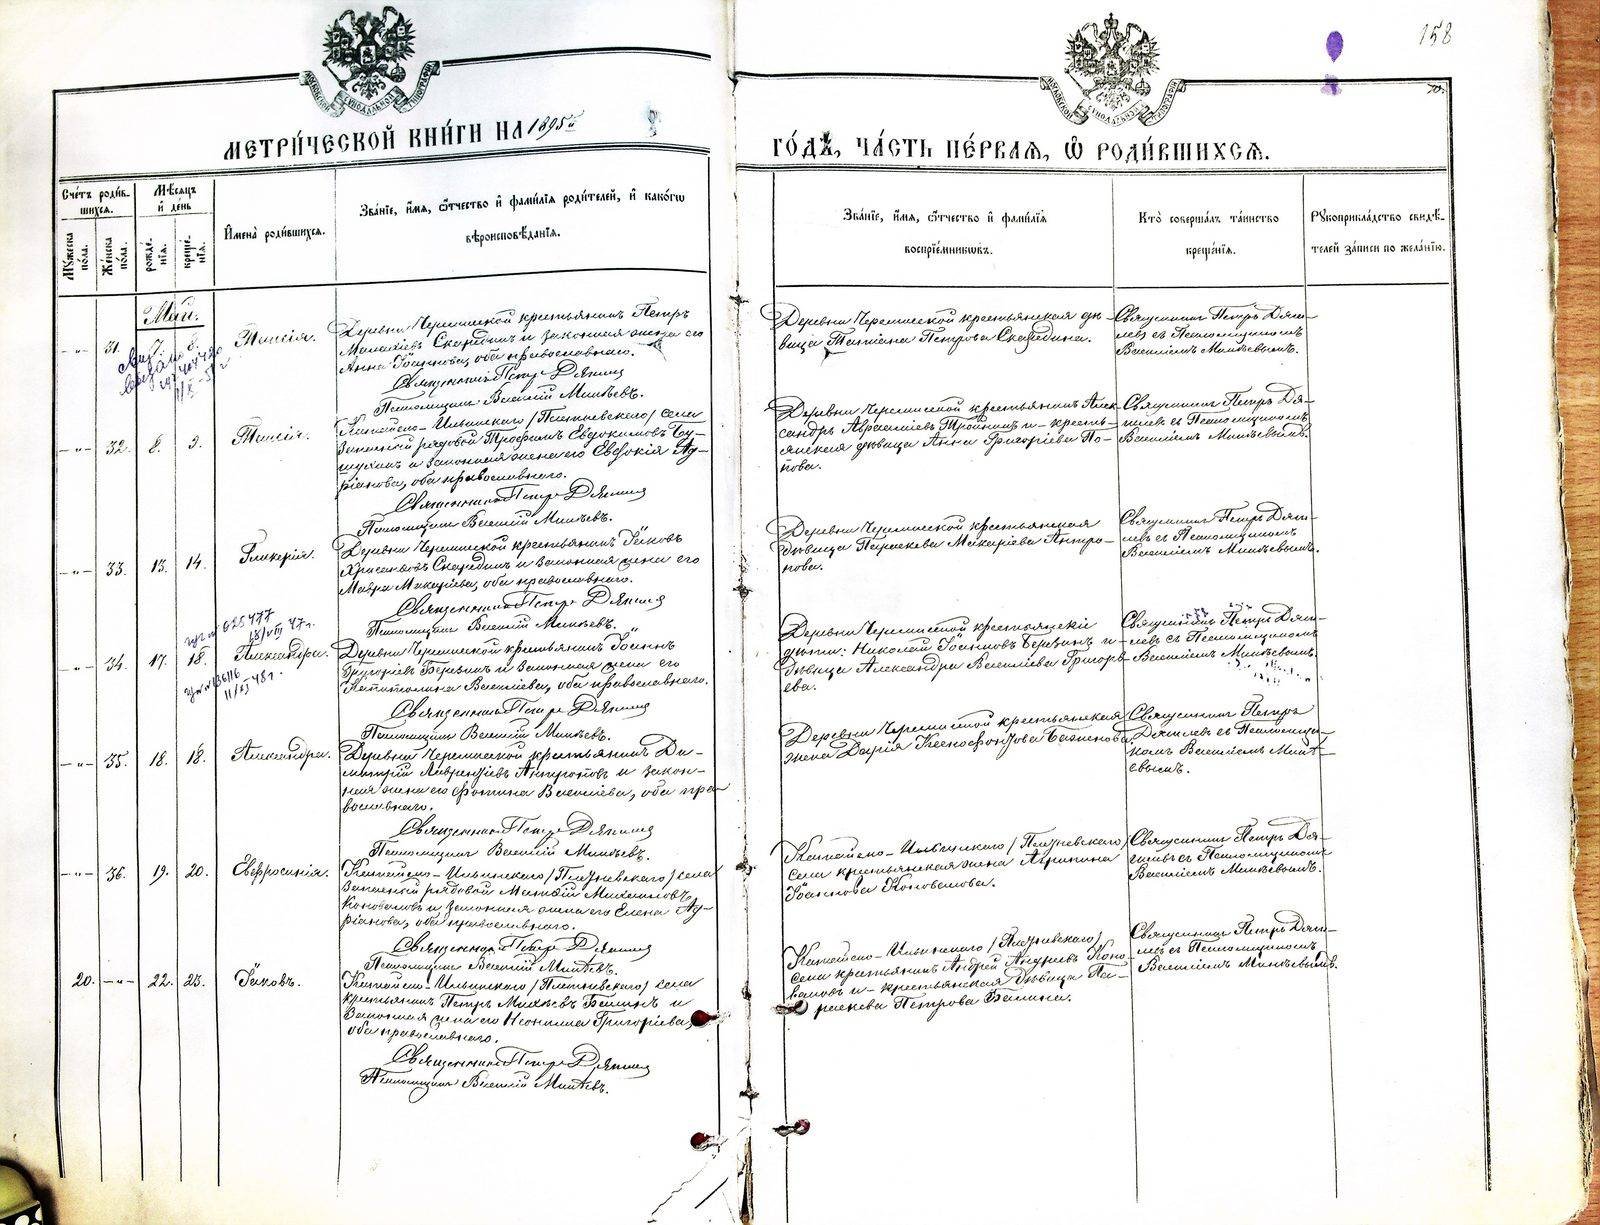 158
70.
МОСКОВСКОЙ СѴНОДАЛЬНОЙ ТИПОГРАФІИ
МОСКОВСКОЙ СѴНОДАЛЬНОЙ ТИПОГРАФІИ
МЕТРИ́ЧЕСКОЙ КНИ́ГИ НА 1895й
ГО́ДЪ, ЧА́СТЬ ПЕ́РВАѦ, Ѡ РОДИ́ВШИХСѦ.
Сче́тъ роди́в-
шихсѧ.
Мꙋ́жеска
по́ла.
Же́нска
по́ла.
Мѣ́сѧцъ
и҆ де́нь
рожде́-
нїѧ.
креще́-
нїѧ.
И҆мена̀ роди́вшихсѧ.
Зва́нїе, и҆́мѧ, ѻ҆́тчество и҆ фами́лїѧ роди́телей, и҆ како́гѡ
вѣроисповѣ́данїѧ.
Зва́нїе, и҆́мѧ, ѻ҆́тчество и҆ фами́лїѧ
воспрїе́мникѡвъ.
Кто̀ соверша́лъ та́инство
креще́нїѧ.
Рꙋкоприкла́дство свидѣ́-
телей за́писи по жела́нїю.
Май.
-„- 31. 7. 8. Таисія.
Деревни Черемисской крестьянинъ Петръ
Малахіевъ Скарединъ и законная жена его
Анна Іоаннова, оба православнаго.
Священникъ Петръ Дягилев
Псаломщикъ Василій Михѣевъ.
Деревни Черемисской крестьянская дѣ-
вица Татіана Петрова Скаредина.
Священникъ Петръ Дяги-
левъ съ Псаломщикомъ
Василіемъ Михѣевымъ.
-„- 32. 8. 9. Таисія.
Катайско-Ильинскаго /Плотневскаго/ села
Запасной рядовой Трофимъ Евдокимовъ
и законная жена его Евдокія Ад-
ріанова, оба православнаго.
Священникъ Петръ Дягилев
Псаломщикъ Василій Михѣевъ.
Деревни Черемисской крестьянинъ Алек-
сандръ и кресть-
янская дѣвица Анна Григоріева По-
пова.
Священникъ Петръ Дя-
гилевъ съ Псаломщикомъ
Василіемъ Михѣевымъ.
-„- 33. 13. 14. Гликерія.
Деревни Черемисской крестьянинъ Іаковъ
Хрисанфовъ Скарединъ и законная жена его
Мавра Макаріева, оба православнаго.
Священникъ Петръ Дягилев
Псаломщикъ Василій Михѣевъ.
Деревни Черемисской крестьянская
дѣвица Параскева Макаріева Антро-
пова.
Священникъ Петръ Дяги-
левъ съ Псаломщикомъ
Василіемъ Михѣевымъ.
-„- 34. 17. 18. Александра.
11/XI 48 г.
Деревни Черемисской крестьянинъ Іоаннъ
Григоріевъ Березинъ и законная жена его
Капитолина Василіева, оба православнаго.
Священникъ Петръ Дягилев
Псаломщикъ Василій Михѣевъ.
Деревни Черемисской крестьянскіе
дѣти: Николай Іоанновъ Березинъ и
дѣвица Александра Василіева Григорь-
ева.
Священникъ Петръ Дяги-
левъ съ Псаломщикомъ
Василіемъ Михѣевымъ.
-„- 35. 18. 18. Александра.
Деревни Черемисской крестьянинъ Ди-
митрій Лаврентіевъ Антроповъ и закон-
ная жена его Фотина Василіева, оба пра-
вославнаго.
Священникъ Петръ Дягилев
Псаломщикъ Василій Михѣевъ.
Деревни Черемисской крестьянская
жена Дарія Ксенофонтова
Священникъ Петръ
Дягилевъ съ Псаломщи-
комъ Василіемъ Михѣ-
евымъ.
-„- 36. 19. 20. Евфросинія.
Катайско-Ильинскаго /Плотневскаго/ села
Запасный рядовой Матѳій Михаиловъ
Коноваловъ и законная жена его Елена Ад-
ріанова, оба православнаго.
Священникъ Петръ Дягилев
Псаломщикъ Василій Михѣевъ.
Катайско-Ильинскаго /Плотневскаго/
села крестьянская жена Агрипина
Іоаннова Коновалова.
Священникъ Петръ Дя-
гилевъ съ Псаломщикомъ
Василіемъ Михѣевымъ.
20. -„- 22. 23. Іаковъ.
Катайско-Ильинскаго /Плотневскаго/ села
крестьянинъ Петръ Михѣевъ и
законная жена его Неонилла Григоріева,
оба православнаго.
Священникъ Петръ Дягилев
Псаломщикъ Василій Михѣевъ.
Катайско-Ильинскаго /Плотневскаго/
села крестьянинъ Андрей Андреевъ Коно-
валовъ и крестьянская дѣвица Па-
раскева Петрова
Священникъ Петръ Дяги-
левъ съ Псаломщикомъ
Василіемъ Михѣевымъ.